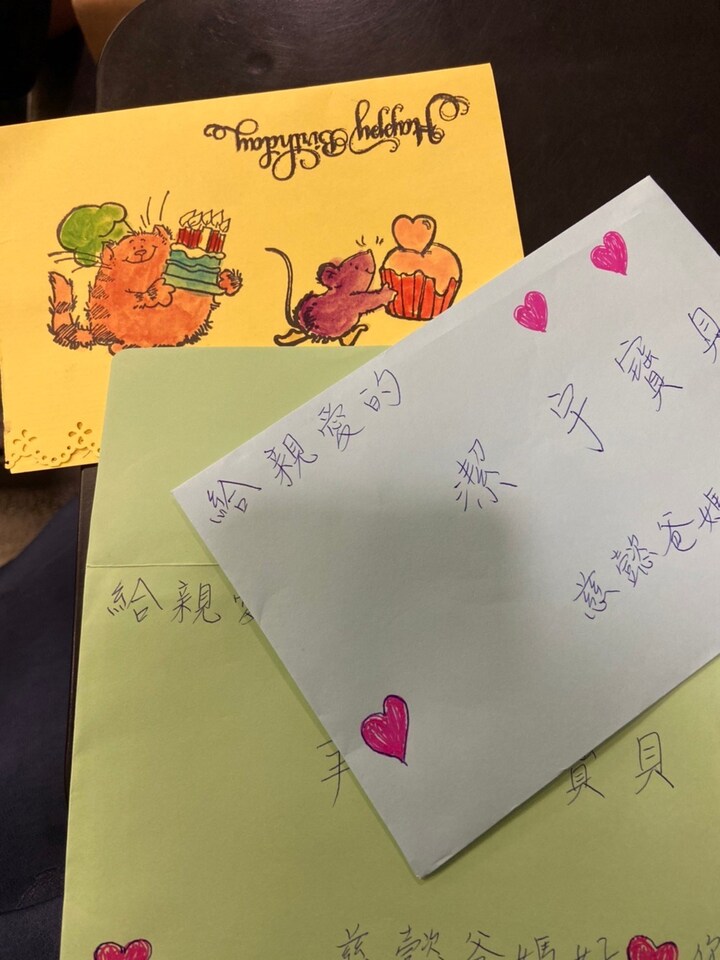 Happy Birthday
給親愛的
潔宇寶貝
慈懿爸媽
給親愛
寶貝
慈懿爸媽好